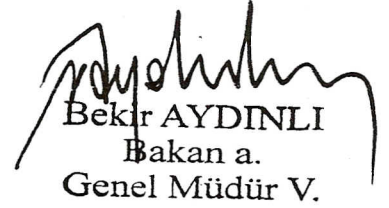 Bekir AYDINLI
Bakan a.
Genel Müdür V.